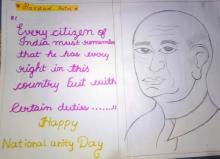 Every citizen of
India must remember
that he has every
right in this
country but with
certain duties ......."
Happy
National unity Day